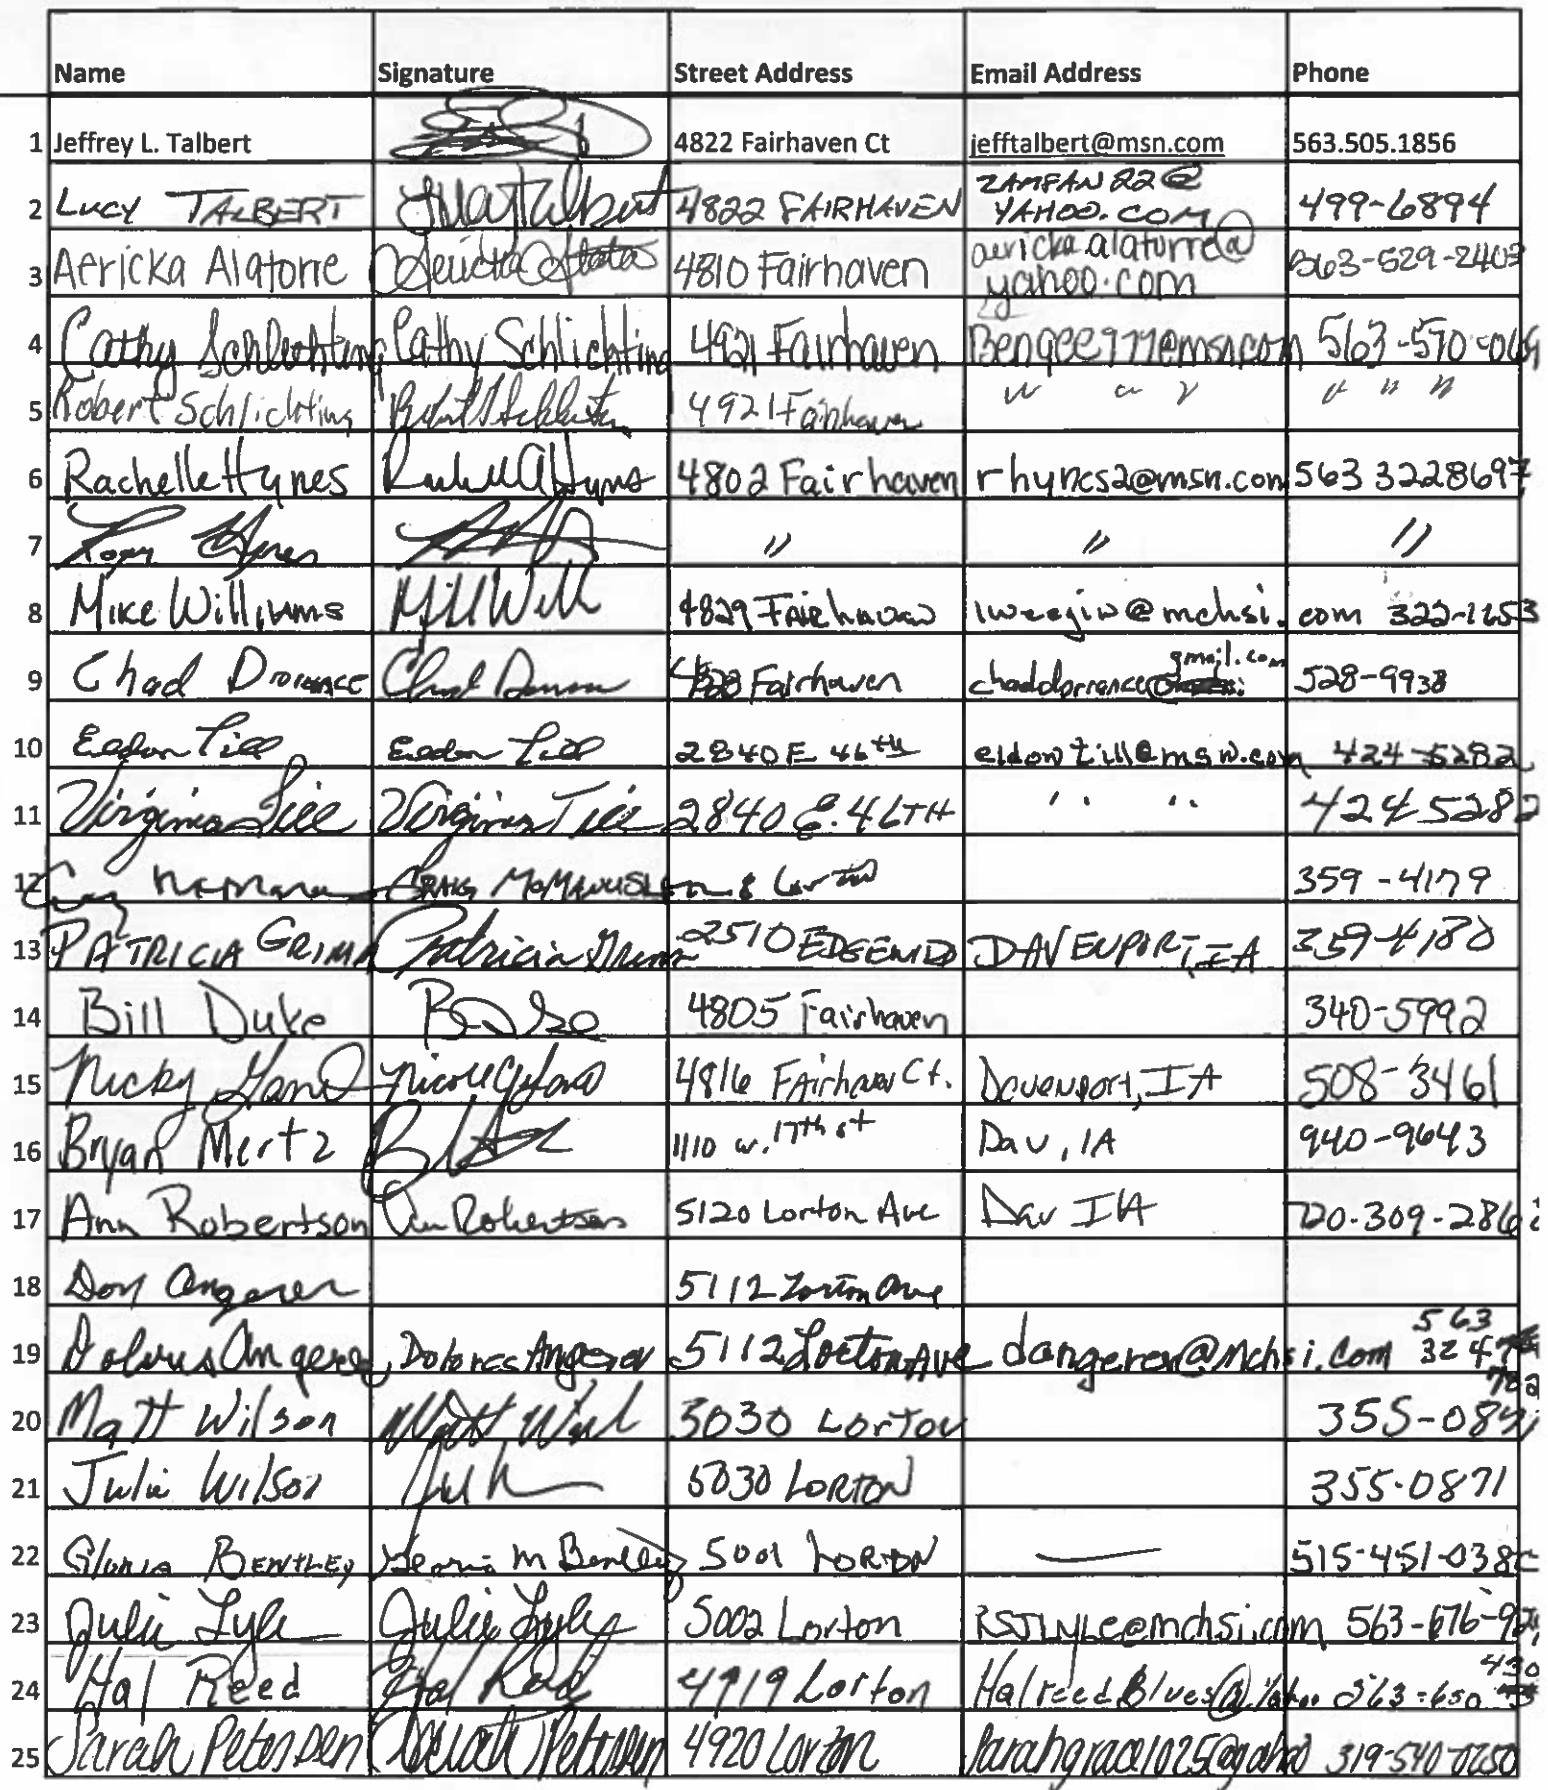 Name Signature Street Address Email Address Phone
1 Jeffrey L. Talbert 4822 Fairhaven Ct jefftalbert@msn.com 563.505.1856
2 LUCY TALBERT Lucy Talbert 4822 FAIRHAVEN ZAMFAN22@ YAHOO.COM 499-6894
3 Aericka Alatorre 4810 Fairhaven aericka.alatorre@ yahoo.com 563-529-2403
4 Cathy Schlichting Cathy Schlichting 4921 Fairhaven 563-570-06
5 Robert Schlichting 4921 Fairhaven " " " " " "
6 Rachelle Hynes 4802 Fairhaven rhynes2@msn.com 563 3228697
7 Tony Hynes " " "
8 Mike Williams 4829 Fairhaven iweegiw@mchsi.com 322-1253
9 Chad Dorrance Chad Fairhaven chaddorrance@gmail.com 528-9938
10 Eldon Till Eldon Till 2840 E 46th eldontill@msn.com 424-5282
11 Virginia Till Virginia Till 2840 E. 46TH " " 424 5282
12 CRAIG McMANUS Lorton 359-4179
13 PATRICIA GRIMM Patricia Grimm 2510 EDGEWD DAVENPORT, IA 359-4180
14 Bill Duke 4805 Fairhaven 340-5992
15 Nicky 4816 Fairhaven Ct. Davenport, IA 508-3461
16 Bryan Mertz 1110 w. 17th st Dav, IA 940-9643
17 Ann Robertson Ann Robertson 5120 Lorton Ave Dav IA 720-309-286
18 Don Angerer 5112 Lorton Ave
19 Dolores Angerer Dolores Angerer 5112 Lorton Ave dangerer@mchsi.com 563 324
20 Matt Wilson Matt 5030 Lorton 355-087
21 Julie Wilson 5030 LORTON 355-0871
22 Gloria BENTLEY Gloria M Bentley 5001 LORTON 515-451-038
23 Julie Lyle Julie Lyle 5002 Lorton RSJLYLE@mchsi.com 563-676-92
24 Hal Reed Hal Reed 4919 Lorton HalreedBlues@ 563-650 430
25 Sarah Petersen Sarah Petersen 4920 Lorton sarahgrace1025@ 319-540-0250